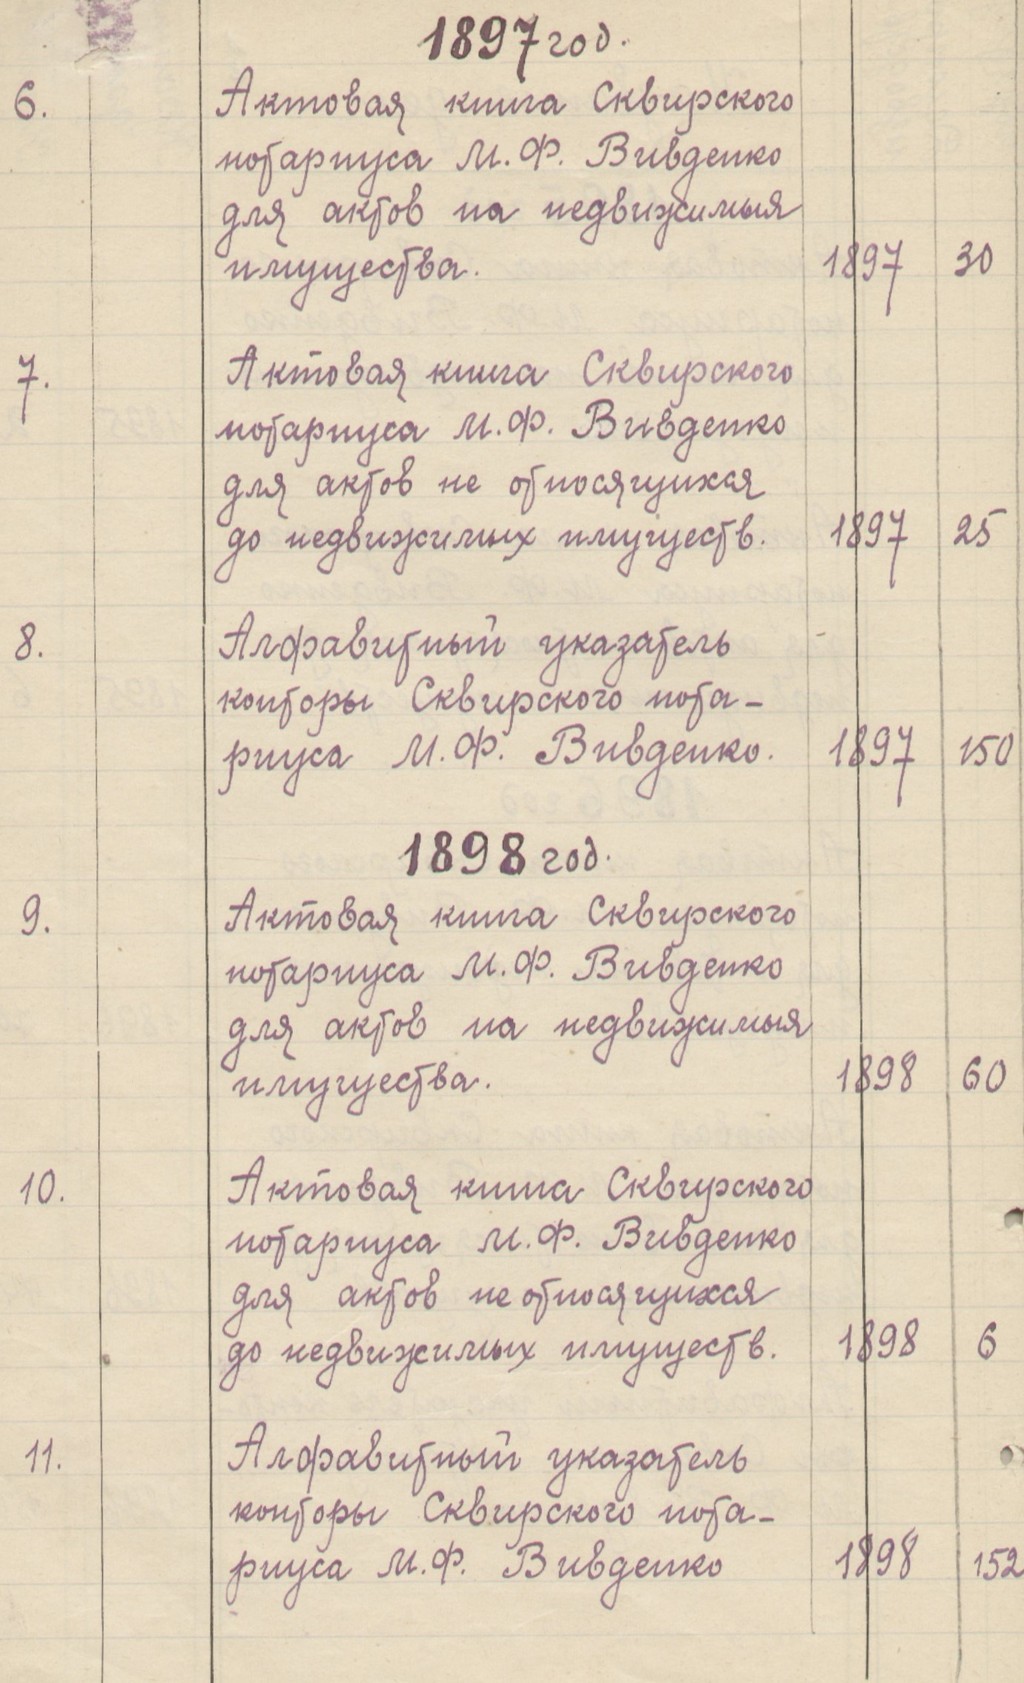 1897 год.
6. Актовая книга Сквирского
нотариуса М. Ф. Вивденко
для актов на недвижимыя
имущества. 1897 30
7. Актовая книга Сквирского
нотариуса М. Ф. Вивденко
для актов не относящихся
до недвижимых имуществ. 1897 25
8. Алфавитный указатель
конторы Сквирского нота-
риуса М. Ф. Вивденко. 1897 150
1898 год.
9. Актовая книга Сквирского
нотариуса М. Ф. Вивденко
для актов на недвижимыя
имущества. 1898 60
10. Актовая книга Сквирского
нотариуса М. Ф. Вивденко
для актов не относящихся
до недвижимых имуществ. 1898 6
11. Алфавитный указатель
конторы Сквирского нота-
риуса М. Ф. Вивденко 1898 152